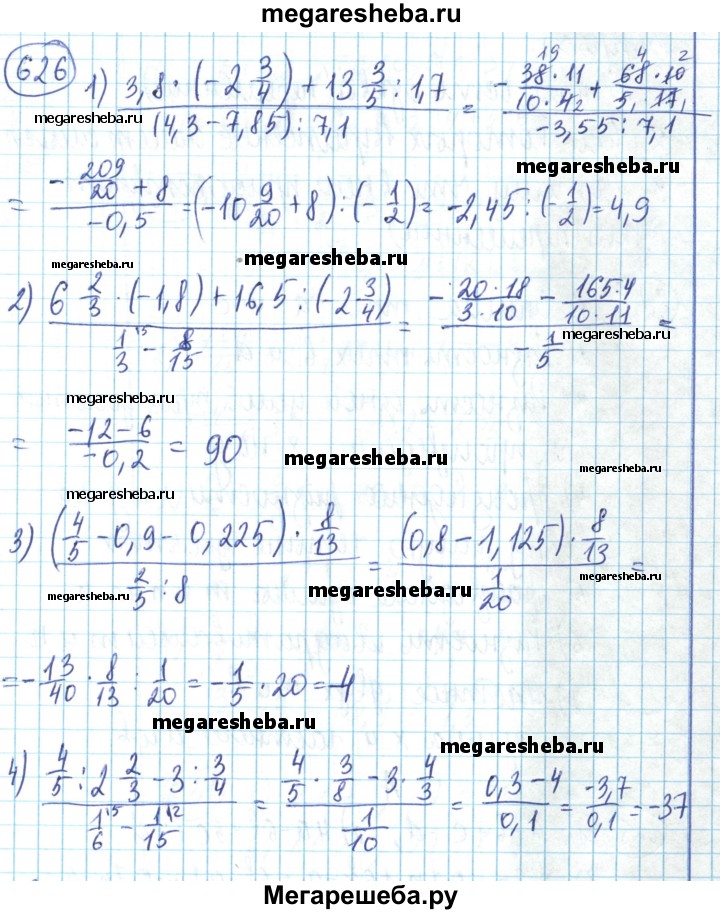 megaresheba.ru
626
1) (3,8 · (-2 3/4) + 13 3/5 : 1,7) / ((4,3 - 7,85) : 7,1) = (- 38 · 11 / 10 · 4 + 68 · 10 / 5 · 17) / (-3,55 : 7,1)
19 2 4 2 1
megaresheba.ru
megaresheba.ru
= (- 209/20 + 8) / (-0,5) = (-10 9/20 + 8) : (- 1/2) = -2,45 : (- 1/2) = 4,9
megaresheba.ru
megaresheba.ru
megaresheba.ru
2) (6 2/3 · (-1,8) + 16,5 : (-2 3/4)) / (1/3 - 8/15) = (- 20 · 18 / 3 · 10 - 165 · 4 / 10 · 11) / (- 1/5) =
megaresheba.ru
megaresheba.ru
= (-12 - 6) / (-0,2) = 90
megaresheba.ru
megaresheba.ru
megaresheba.ru
3) ((4/5 - 0,9 - 0,225) · 8/13) / (2/5 : 8) = ((0,8 - 1,125) · 8/13) / (1/20) =
megaresheba.ru
megaresheba.ru
megaresheba.ru
= - 13/40 · 8/13 : 1/20 = - 1/5 · 20 = -4
megaresheba.ru
megaresheba.ru
4) (4/5 : 2 2/3 - 3 : 3/4) / (1/6 - 1/15) = (4/5 · 3/8 - 3 · 4/3) / (1/10) = (0,3 - 4) / 0,1 = -3,7 / 0,1 = -37
Мегарешеба.ру